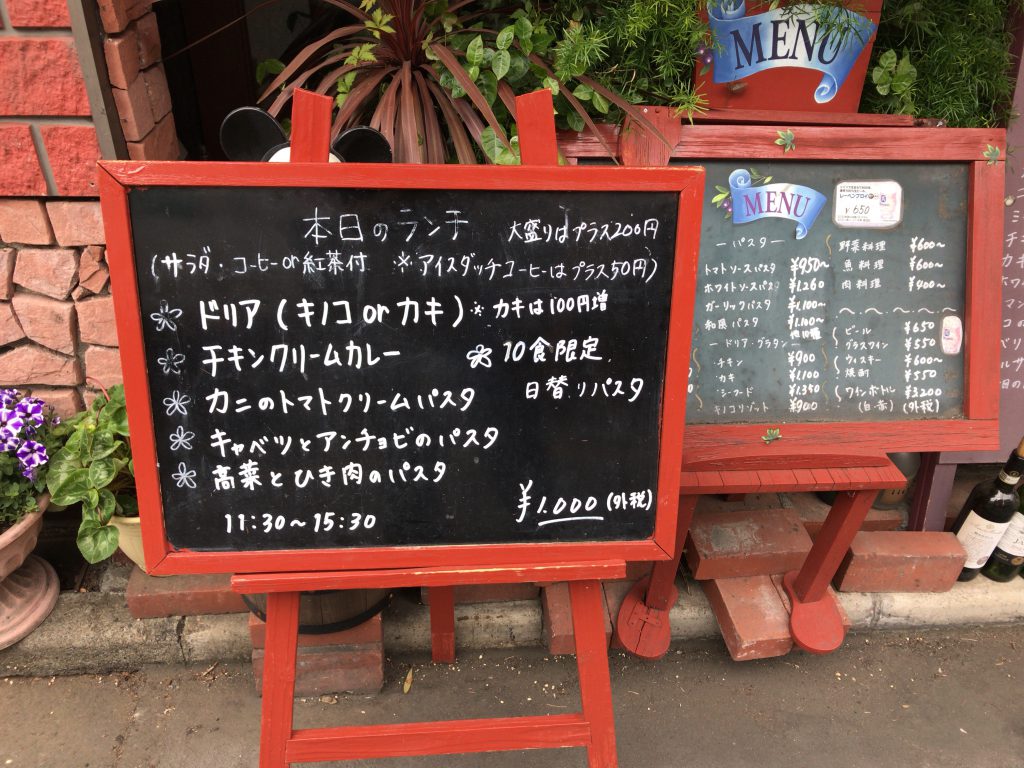 本日のランチ 大盛りはプラス200円
(サラダ・コーヒーor紅茶付 ※アイスダッチコーヒーはプラス50円)
ドリア(キノコorカキ)※カキは100円増
チキンクリームカレー
カニのトマトクリームパスタ
キャベツとアンチョビのパスタ
高菜とひき肉のパスタ
11:30〜15:30
10食限定
日替りパスタ
¥1.000(外税)
MENU
MENU
¥650
ーパスター
トマトソースパスタ ¥950〜
ホワイトソースパスタ ¥1.260
ガーリックパスタ ¥1.100〜
和風パスタ ¥1.100〜
ードリア・グラタンー
チキン ¥900
カキ ¥1.100
シーフード ¥1.350
キノコリゾット ¥900
野菜料理 ¥600〜
魚料理 ¥600〜
肉料理 ¥900〜
ビール ¥650
グラスワイン ¥550
ウィスキー ¥600〜
焼酎 ¥550
ワインボトル ¥3.200
(白・赤) (外税)